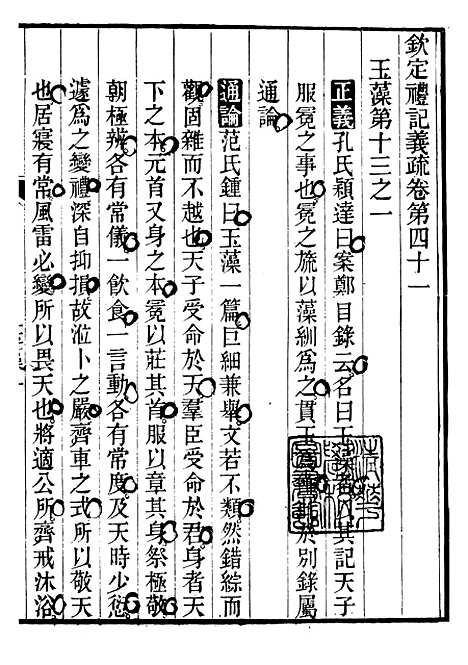 欽定禮記義疏卷第四十一
玉藻第十三之一
正義孔氏穎達曰案鄭目錄云名曰玉藻者以其記天子
服冕之事也冕之旒以藻紃爲之貫玉爲飾此於別錄屬
通論
通論范氏鍾曰玉藻一篇巨細兼舉文若不類然錯綜而
觀固雜而不越也天子受命於天羣臣受命於君身者天
下之本元首又身之本冕以莊其首服以章其身祭極敬
朝極辨各有常儀一飲食一言動各有常度及天時少愆
遽爲之變禮深自抑損故涖卜之嚴齊車之式所以敬天
也居寢有常風雷必變所以畏天也將適公所齊戒沐浴